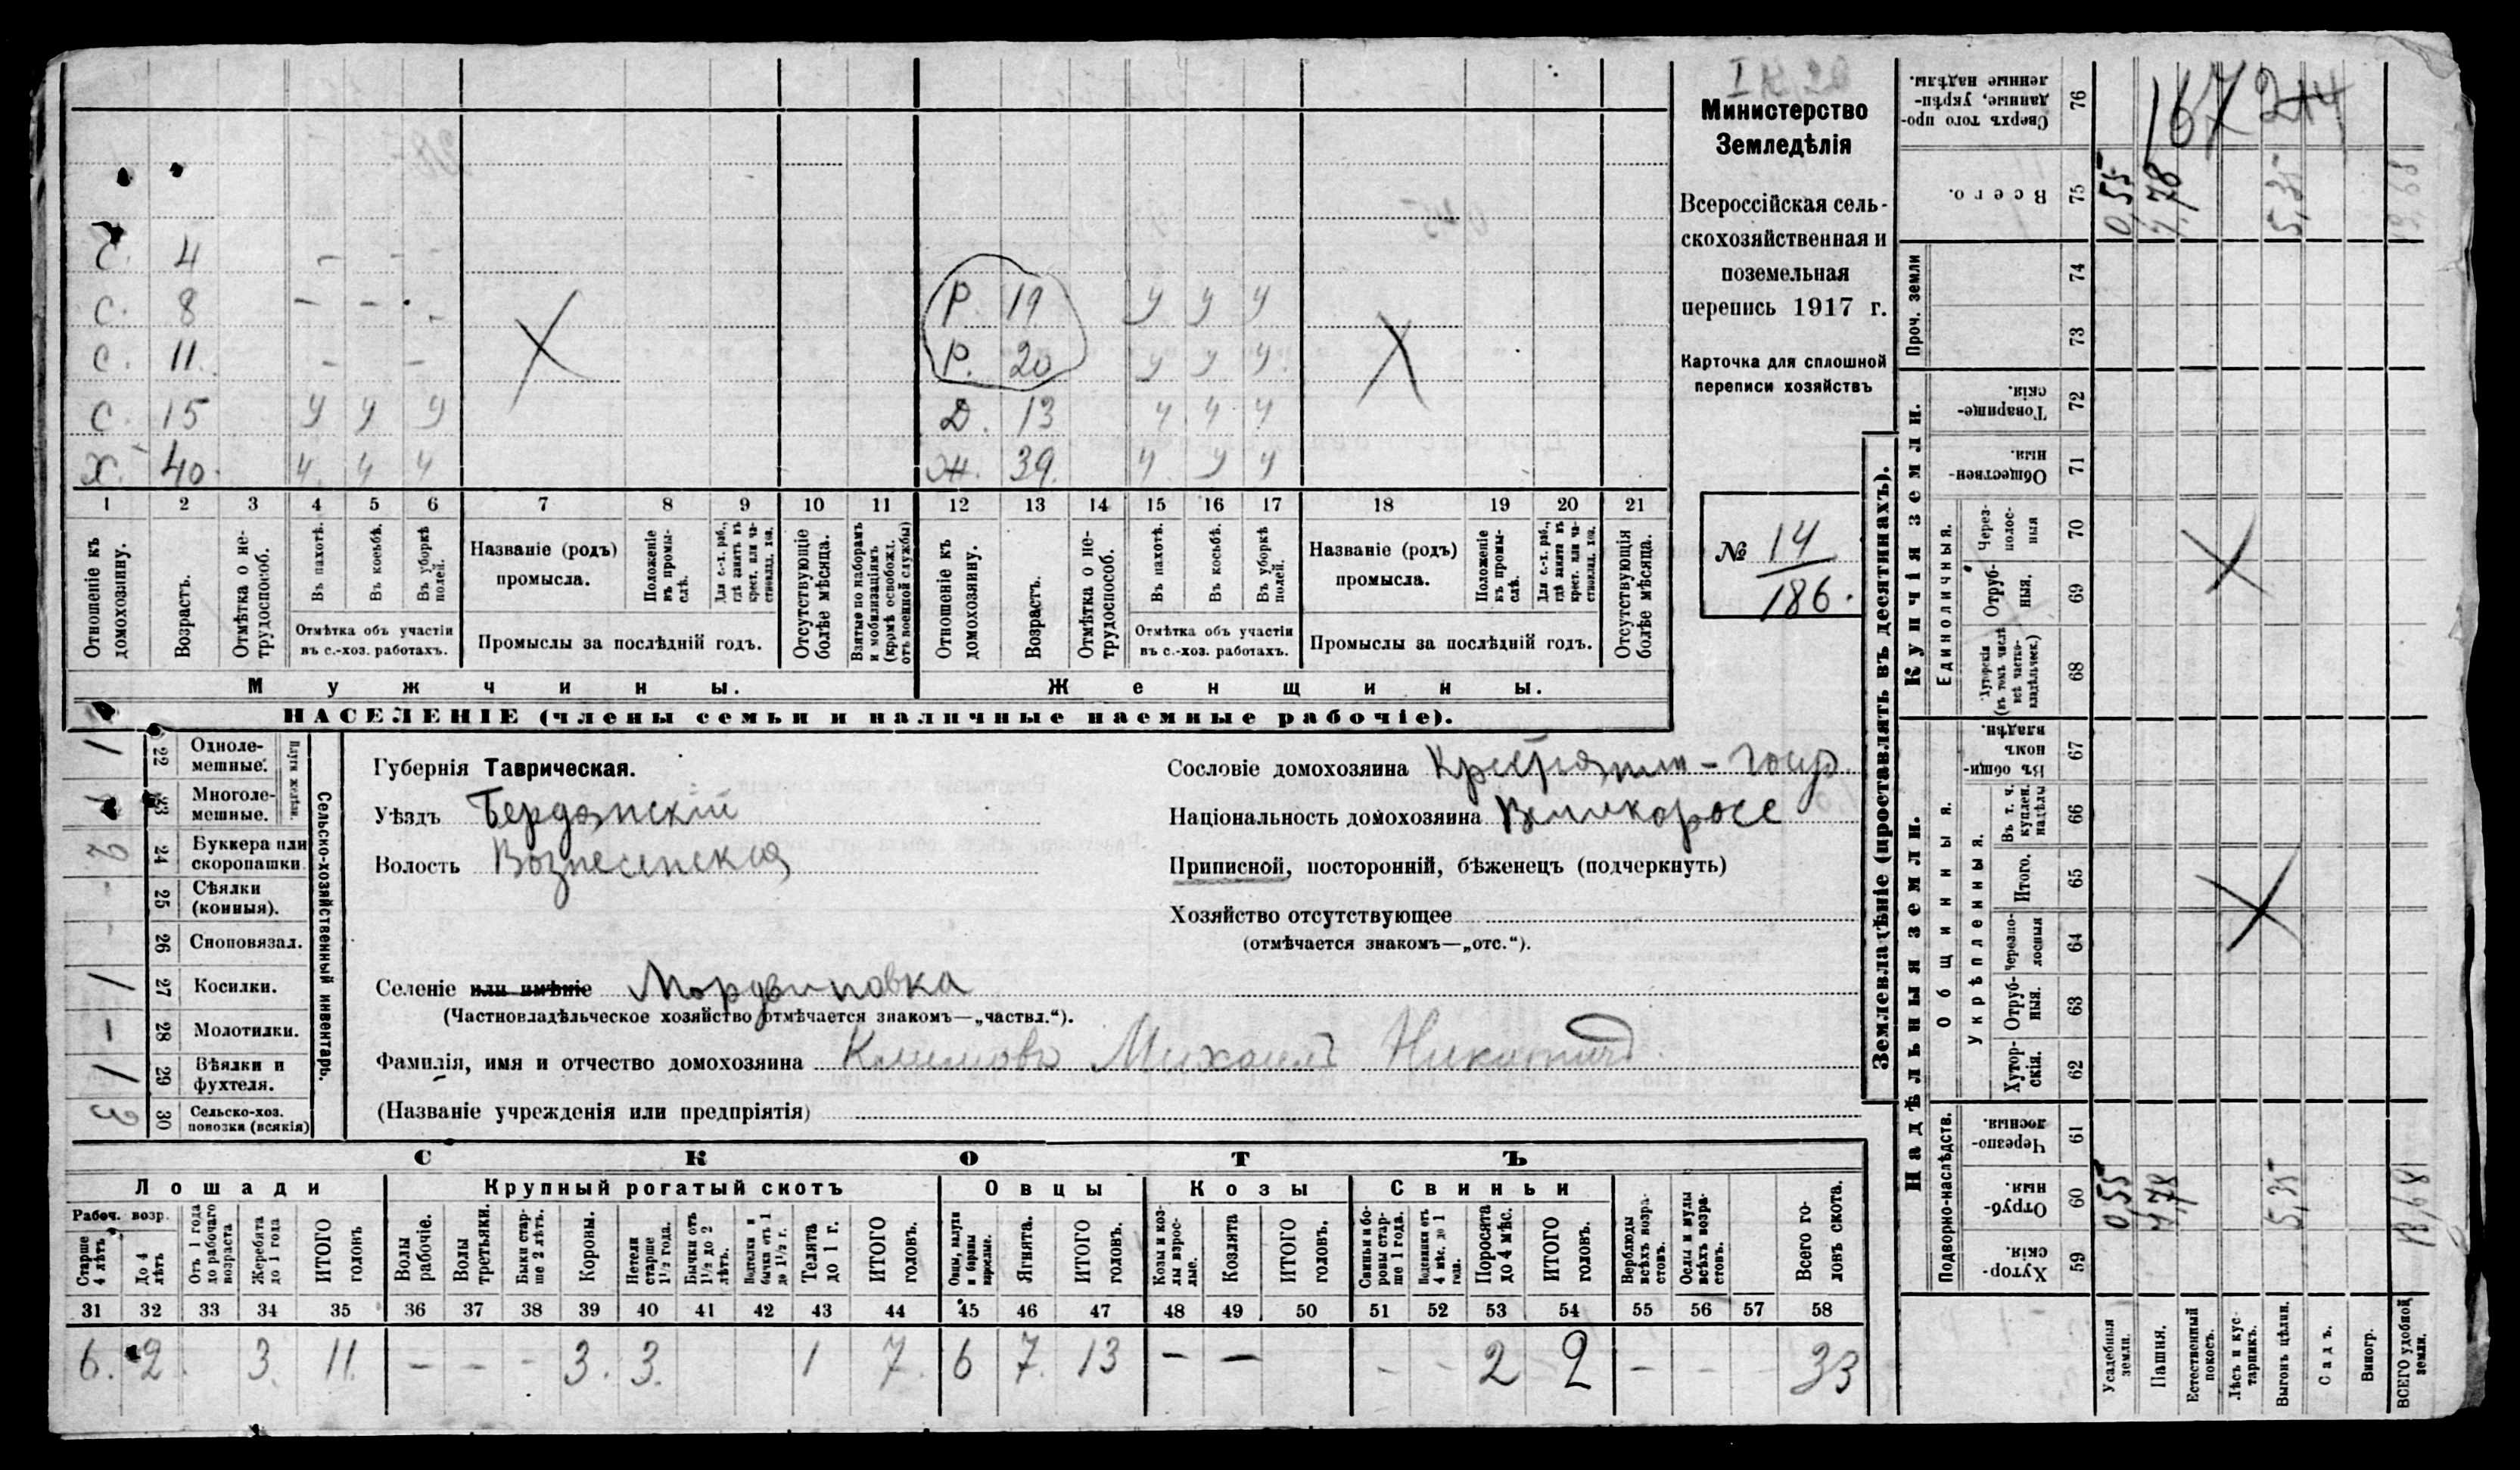 Министерство
Земледѣлія
Всероссійская сель-
скохозяйственная и
поземельная
перепись 1917 г.
Карточка для сплошной
переписи хозяйствъ
№ 14
186.
С. 4 - - -
С. 8 - - -
С. 11. - -
С. 15 у у у
Х. 40. у у у
Р. 19 у у у
Р. 20 у у у
Д. 13 у у у
Ж. 39. у у у
1 2 3 4 5 6 7 8 9 10 11 12 13 14 15 16 17 18 19 20 21
Отношеніе къ домохозяину.
Возрастъ.
Отмѣтка о не-трудоспособ.
Въ пахотѣ.
Въ косьбѣ.
Въ уборкѣ полей.
Отмѣтка объ участіи
въ с.-хоз. работахъ.
Названіе (родъ)
промысла.
Положеніе въ промы-слѣ.
Для с.-х. раб., гдѣ занятъ въ крест. или ча-стновлад. хоз.
Промыслы за послѣдній годъ.
Отсутствующіе болѣе мѣсяца.
Взятые по наборамъ и мобилизаціямъ (кромѣ освобожд. отъ военной службы)
Отношеніе къ домохозяину.
Возрастъ.
Отмѣтка о не-трудоспособ.
Въ пахотѣ.
Въ косьбѣ.
Въ уборкѣ полей.
Отмѣтка объ участіи
въ с.-хоз. работахъ.
Названіе (родъ)
промысла.
Положеніе въ промы-слѣ.
Для с.-х. раб., гдѣ занятъ въ крест. или ча-стновлад. хоз.
Промыслы за послѣдній годъ.
Отсутствующія болѣе мѣсяца.
Мужчины.
Женщины.
НАСЕЛЕНІЕ (члены семьи и наличные наемные рабочіе).
Сельско-хозяйственный инвентарь.
Плуги желѣзн.
1 22 Одноле-мешные.
1 23 Многоле-мешные.
2 24 Буккера или скоропашки
- 25 Сѣялки (конныя).
- 26 Сноповязал.
1 27 Косилки.
- 28 Молотилки.
1 29 Вѣялки и фухтеля.
3 30 Сельско-хоз. повозки (всякія)
Губернія Таврическая.
Уѣздъ Бердянскій
Волость Вознесенская
Сословіе домохозяина Крестьянин - госуд.
Національность домохозяина Великоросс
Приписной, посторонній, бѣженецъ (подчеркнуть)
Хозяйство отсутствующее
(отмѣчается знакомъ—„отс.“).
Селеніе или имѣніе Мордвиновка
(Частновладѣльческое хозяйство отмѣчается знакомъ—„частвл.“).
Фамилія, имя и отчество домохозяина Климовъ Михаилъ Никитичъ
(Названіе учрежденія или предпріятія)
СКОТЪ
Лошади
Крупный рогатый скотъ
Овцы
Козы
Свиньи
Рабоч. возр.
Старше 4 лѣтъ
До 4 лѣтъ
Отъ 1 года до рабочаго возраста
Жеребята до 1 года
ИТОГО головъ
Волы рабочіе.
Волы третьяки.
Быки стар-ше 2 лѣтъ.
Коровы.
Нетели старше 1½ года.
Бычки отъ 1½ до 2 лѣтъ.
Подтелки и бычки отъ 1 до 1½ г.
Телята до 1 г.
ИТОГО головъ.
Овцы, валухи и бараны взрослые.
Ягнята.
ИТОГО головъ.
Козы и коз-лы взрос-лые.
Козлята
ИТОГО головъ.
Свиньи и бо-ровы стар-ше 1 года.
Подсвинки отъ 4 мѣс. до 1 года.
Поросята до 4 мѣс.
ИТОГО головъ.
Верблюды всѣхъ возра-стовъ.
Ослы и мулы всѣхъ возра-стовъ.
Всего го-ловъ скота.
31 32 33 34 35 36 37 38 39 40 41 42 43 44 45 46 47 48 49 50 51 52 53 54 55 56 57 58
6. 2 3. 11. - - - 3. 3. 1 7. 6 7. 13 - - - - 2 2 - - - 33
Землевладѣніе (проставлять въ десятинахъ).
Купчія земли.
Надѣльныя земли.
Сверхъ того про-данные, укрѣп-ленные надѣлы. 76
Всего. 75
Проч. земли
74
73
Товарище-скія. 72
Обществен-ныя. 71
Единоличныя.
Через-полос-ныя 70
Отруб-ныя. 69
Хуторскія (въ томъ числѣ всѣ частно-владѣльческ.) 68
Общинныя.
Въ общи-номъ владѣн. 67
Укрѣпленныя.
Въ т. ч. куплен. надѣлы 66
Итого. 65
Черезпо-лосныя 64
Отруб-ныя. 63
Хутор-скія. 62
Подворно-наслѣдств.
Черезпо-лосныя. 61
Отруб-ныя 60
Хутор-скія. 59
Усадебныя земли.
Пашня.
Естественный покосъ.
Лѣсъ и кус-тарникъ.
Выгонъ цѣлин.
Садъ.
Виногр.
ВСЕГО удобной земли.
167
0,55 7,78 5,35
0,55 7,78 5,35 13,68